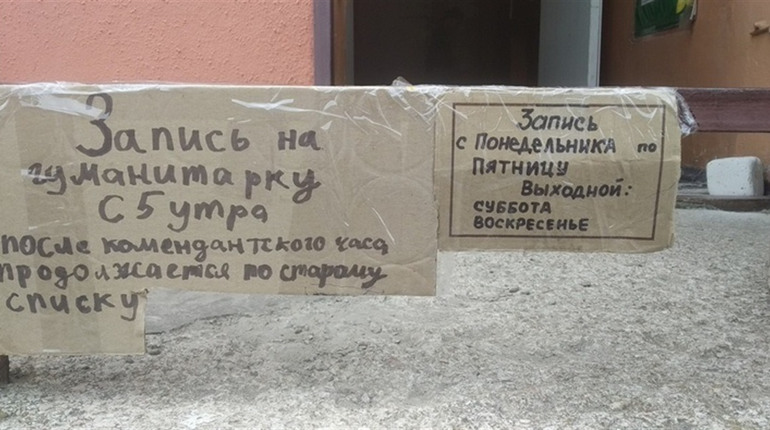 Запись на
гуманитарку
с 5 утра
после комендантского часа
продолжается по старому
списку
Запись
с Понедельника по
Пятницу
Выходной:
суббота
воскресенье